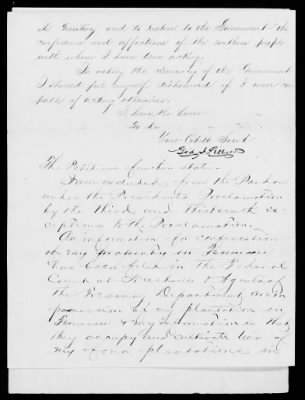 the Territory and to restore to the Government the
confidence and affections of the southern people
with whom I have been acting.
In asking the clemency of the Government
I should feel myself dishonored if I were ca-
pable of acting otherwise.
I have the honor
To be
Your Obdt Servt
Gid. J. Pillow
The Petitioner further states
I am excluded from the Pardon
under the President's Proclamation
by the Third and thirteenth ex-
ceptions to the Proclamation.
An information for confiscation
of my property in Tennessee
has been filed in the Federal
Court at Nashville & Agents of
the Treasury Department are in
possession of my plantation in
Tennessee & my information is that
they occupy and cultivate two of
my plantations in